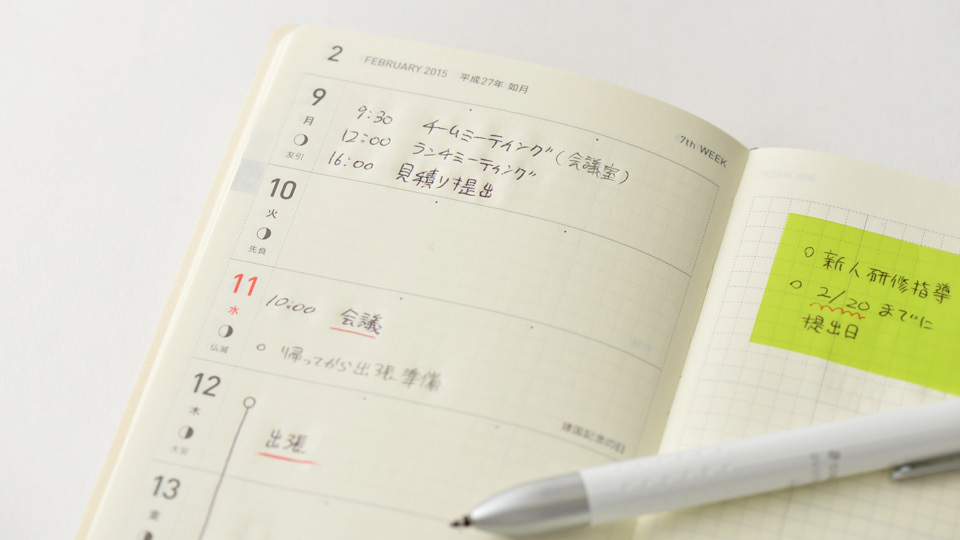 2 FEBRUARY 2015 平成27年 如月
7th WEEK
9 月 友引
9:30 チームミーティング(会議室)
12:00 ランチミーティング
16:00 見積り提出
10 火 先負
11 水 仏滅
10:00 会議
○ 帰ってから出張準備
建国記念の日
12 木 大安
出張
13 金
○ 新人研修指導
○ 2/20 までに
提出日